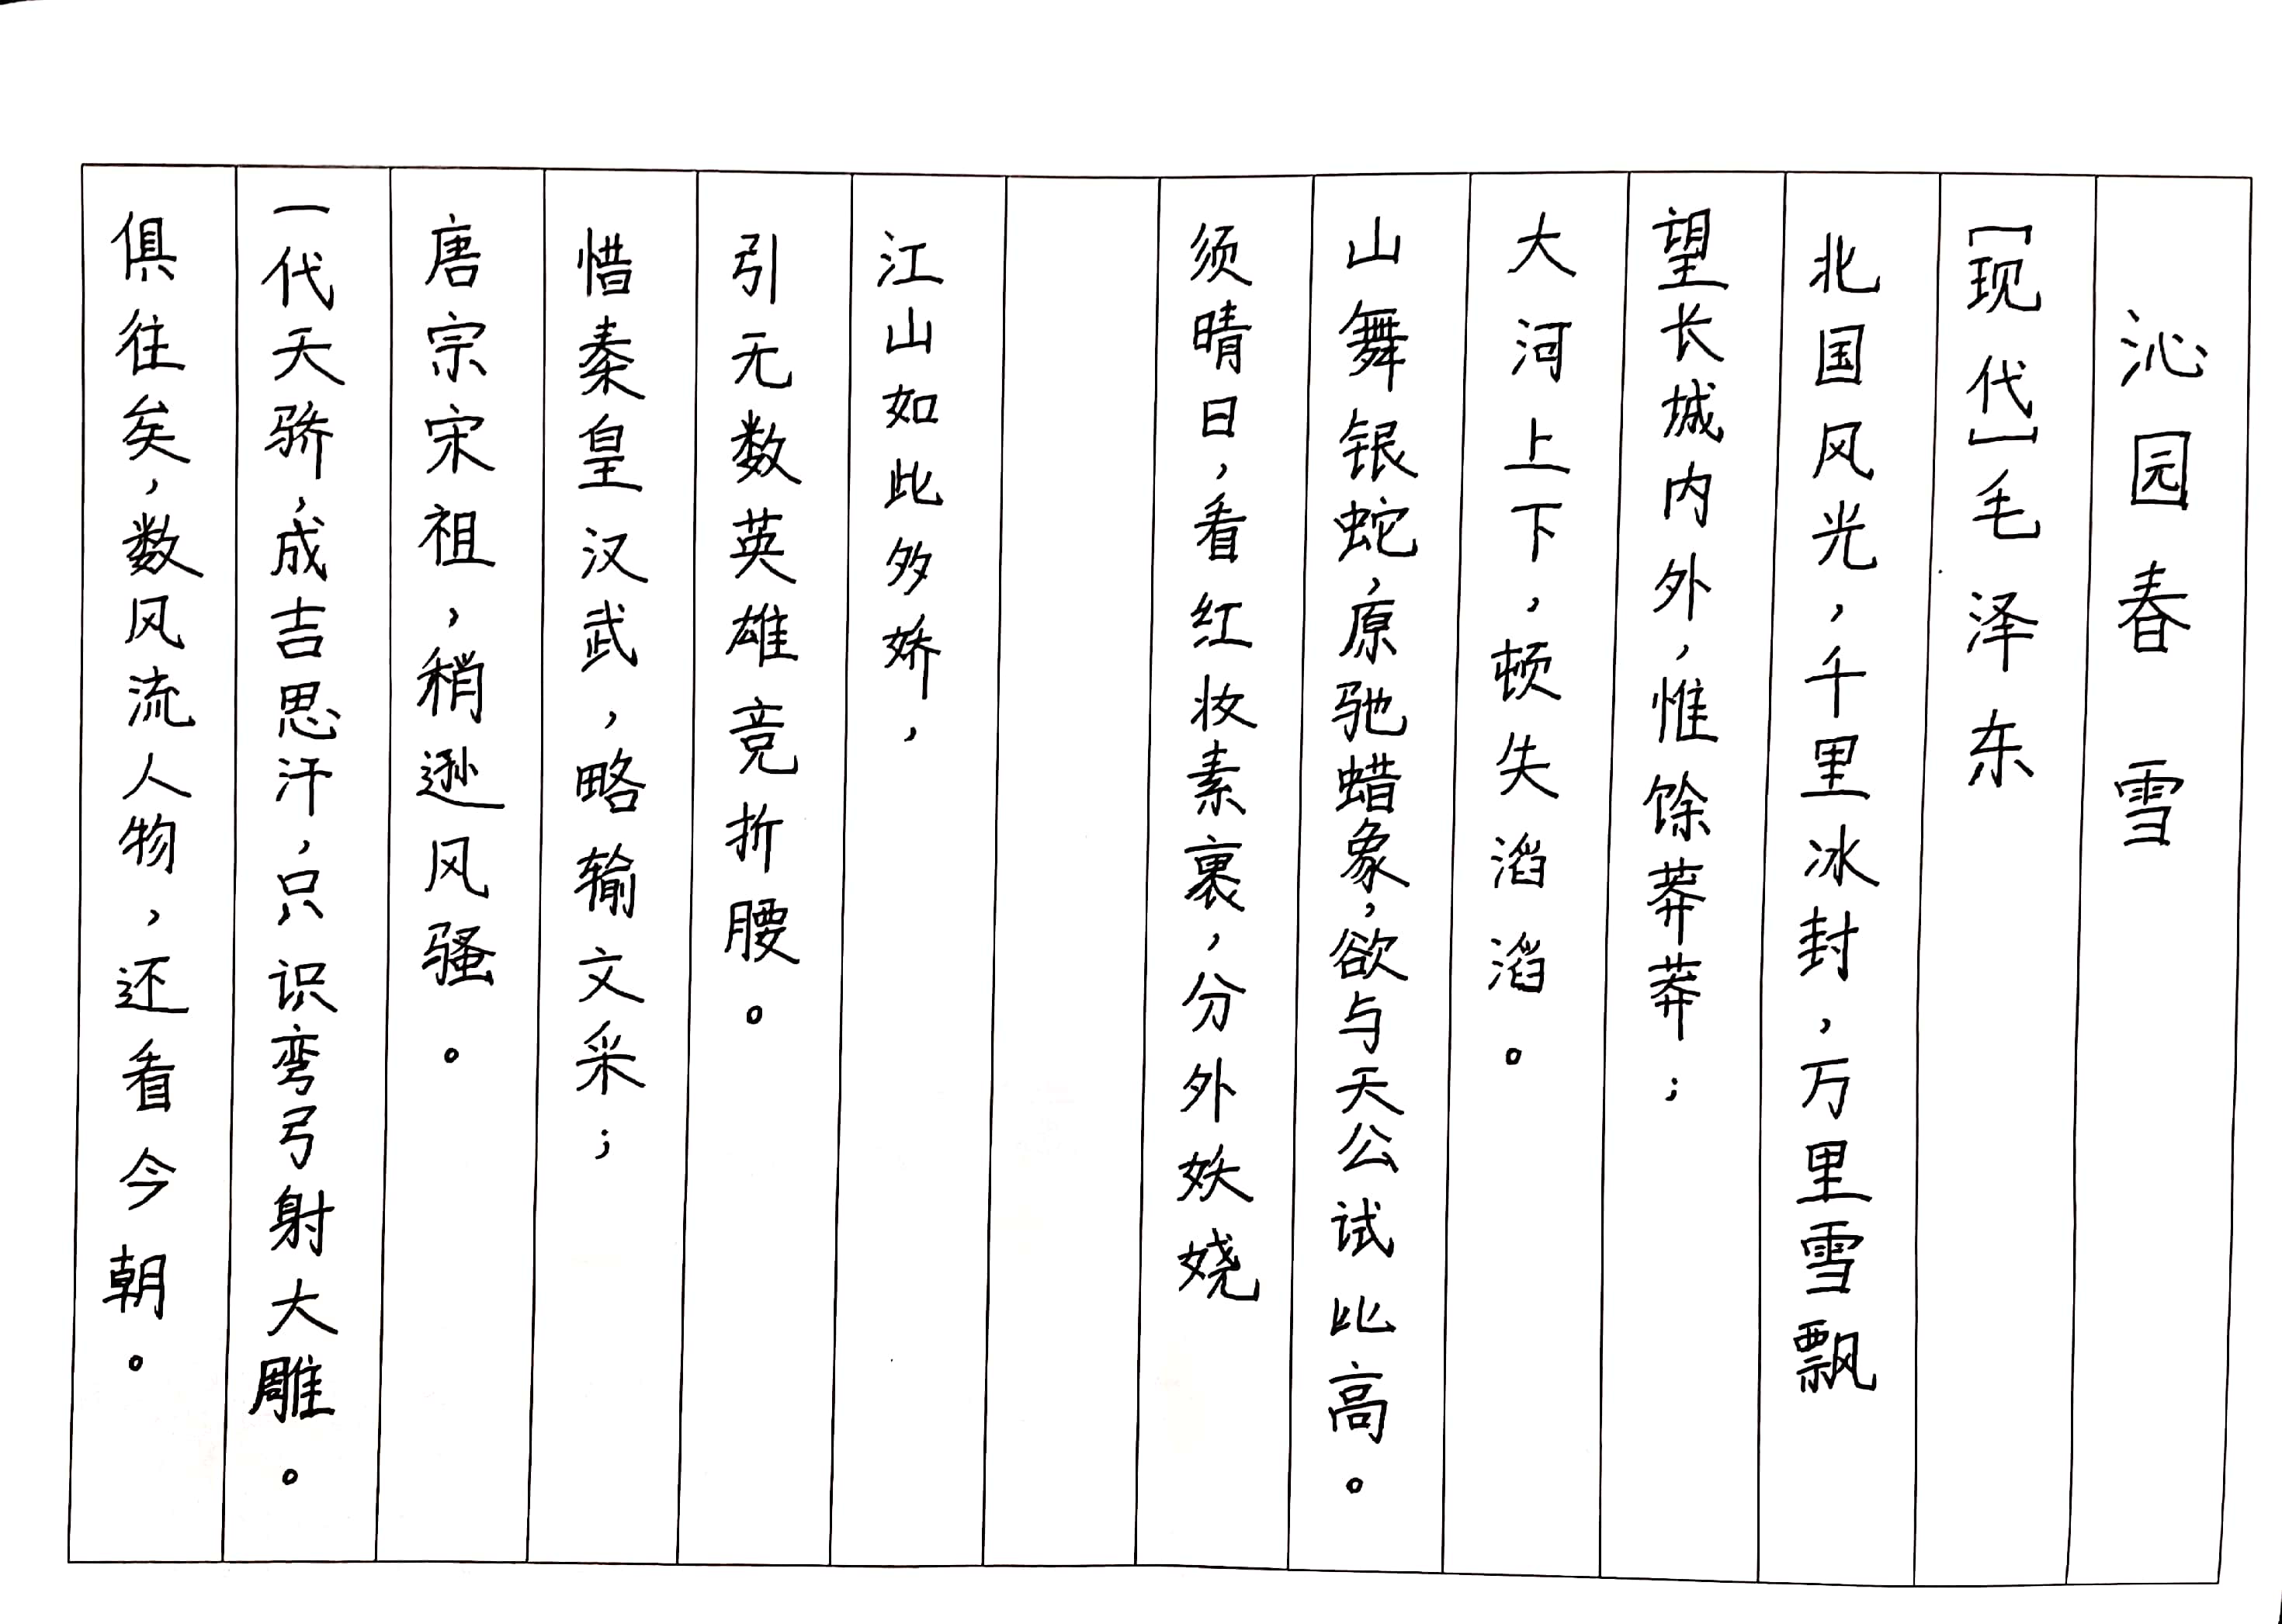 沁园春 雪
[现代]毛泽东
北国风光,千里冰封,万里雪飘
望长城内外,惟馀莽莽;
大河上下,顿失滔滔。
山舞银蛇,原驰蜡象,欲与天公试比高。
须晴日,看红妆素裹,分外妖娆
江山如此多娇,
引无数英雄竞折腰。
惜秦皇汉武,略输文采;
唐宗宋祖,稍逊风骚。
一代天骄,成吉思汗,只识弯弓射大雕。
俱往矣,数风流人物,还看今朝。